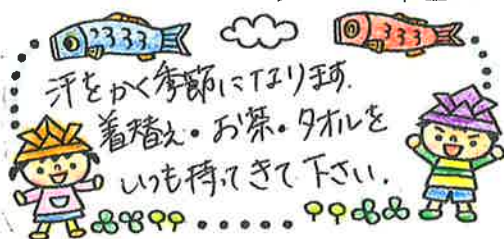 汗をかく季節になります.
着替え・お茶・タオルを
いつも持ってきて下さい.